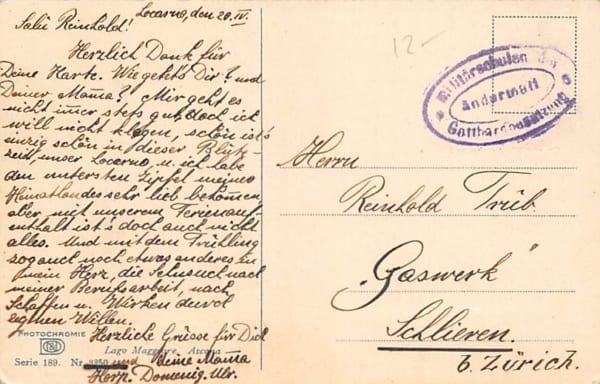 Locarno, den 20. IV.
Salü Reinhold!
Herzlich Dank für
Deine Karte. Wie geht's Dir? und
Deiner Mama? Mir geht es
nicht imer stets gut, doch ich
will nicht klagen, schön ist's
einzig schön in dieser Blüt-
zeit, unser Locarno, u. ich habe
den untersten Zipfel meines
Heimatlandes sehr lieb bekomen,
aber mit unserem Ferienauf-
enthalt ist's doch auch nicht
alles. Und mit dem Frühling
zog auch noch etwas anderes in
mein Herz, die Sehnsucht nach
meiner Berufsarbeit, nach
Schaffen u. Wirken durch
eigenen Willen.
Herzliche Grüsse für Dich
und deine Mama
Herm. Domenig.
PHOTOCHROMIE
Lago Maggiore, Ascona
Serie 189. Nr. 3250
12-
Militärschulen der
Andermatt
Gotthardbesatzung
Herrn
Reinhold Trüb.
"Gaswerk"
Schlieren.
b. Zürich.